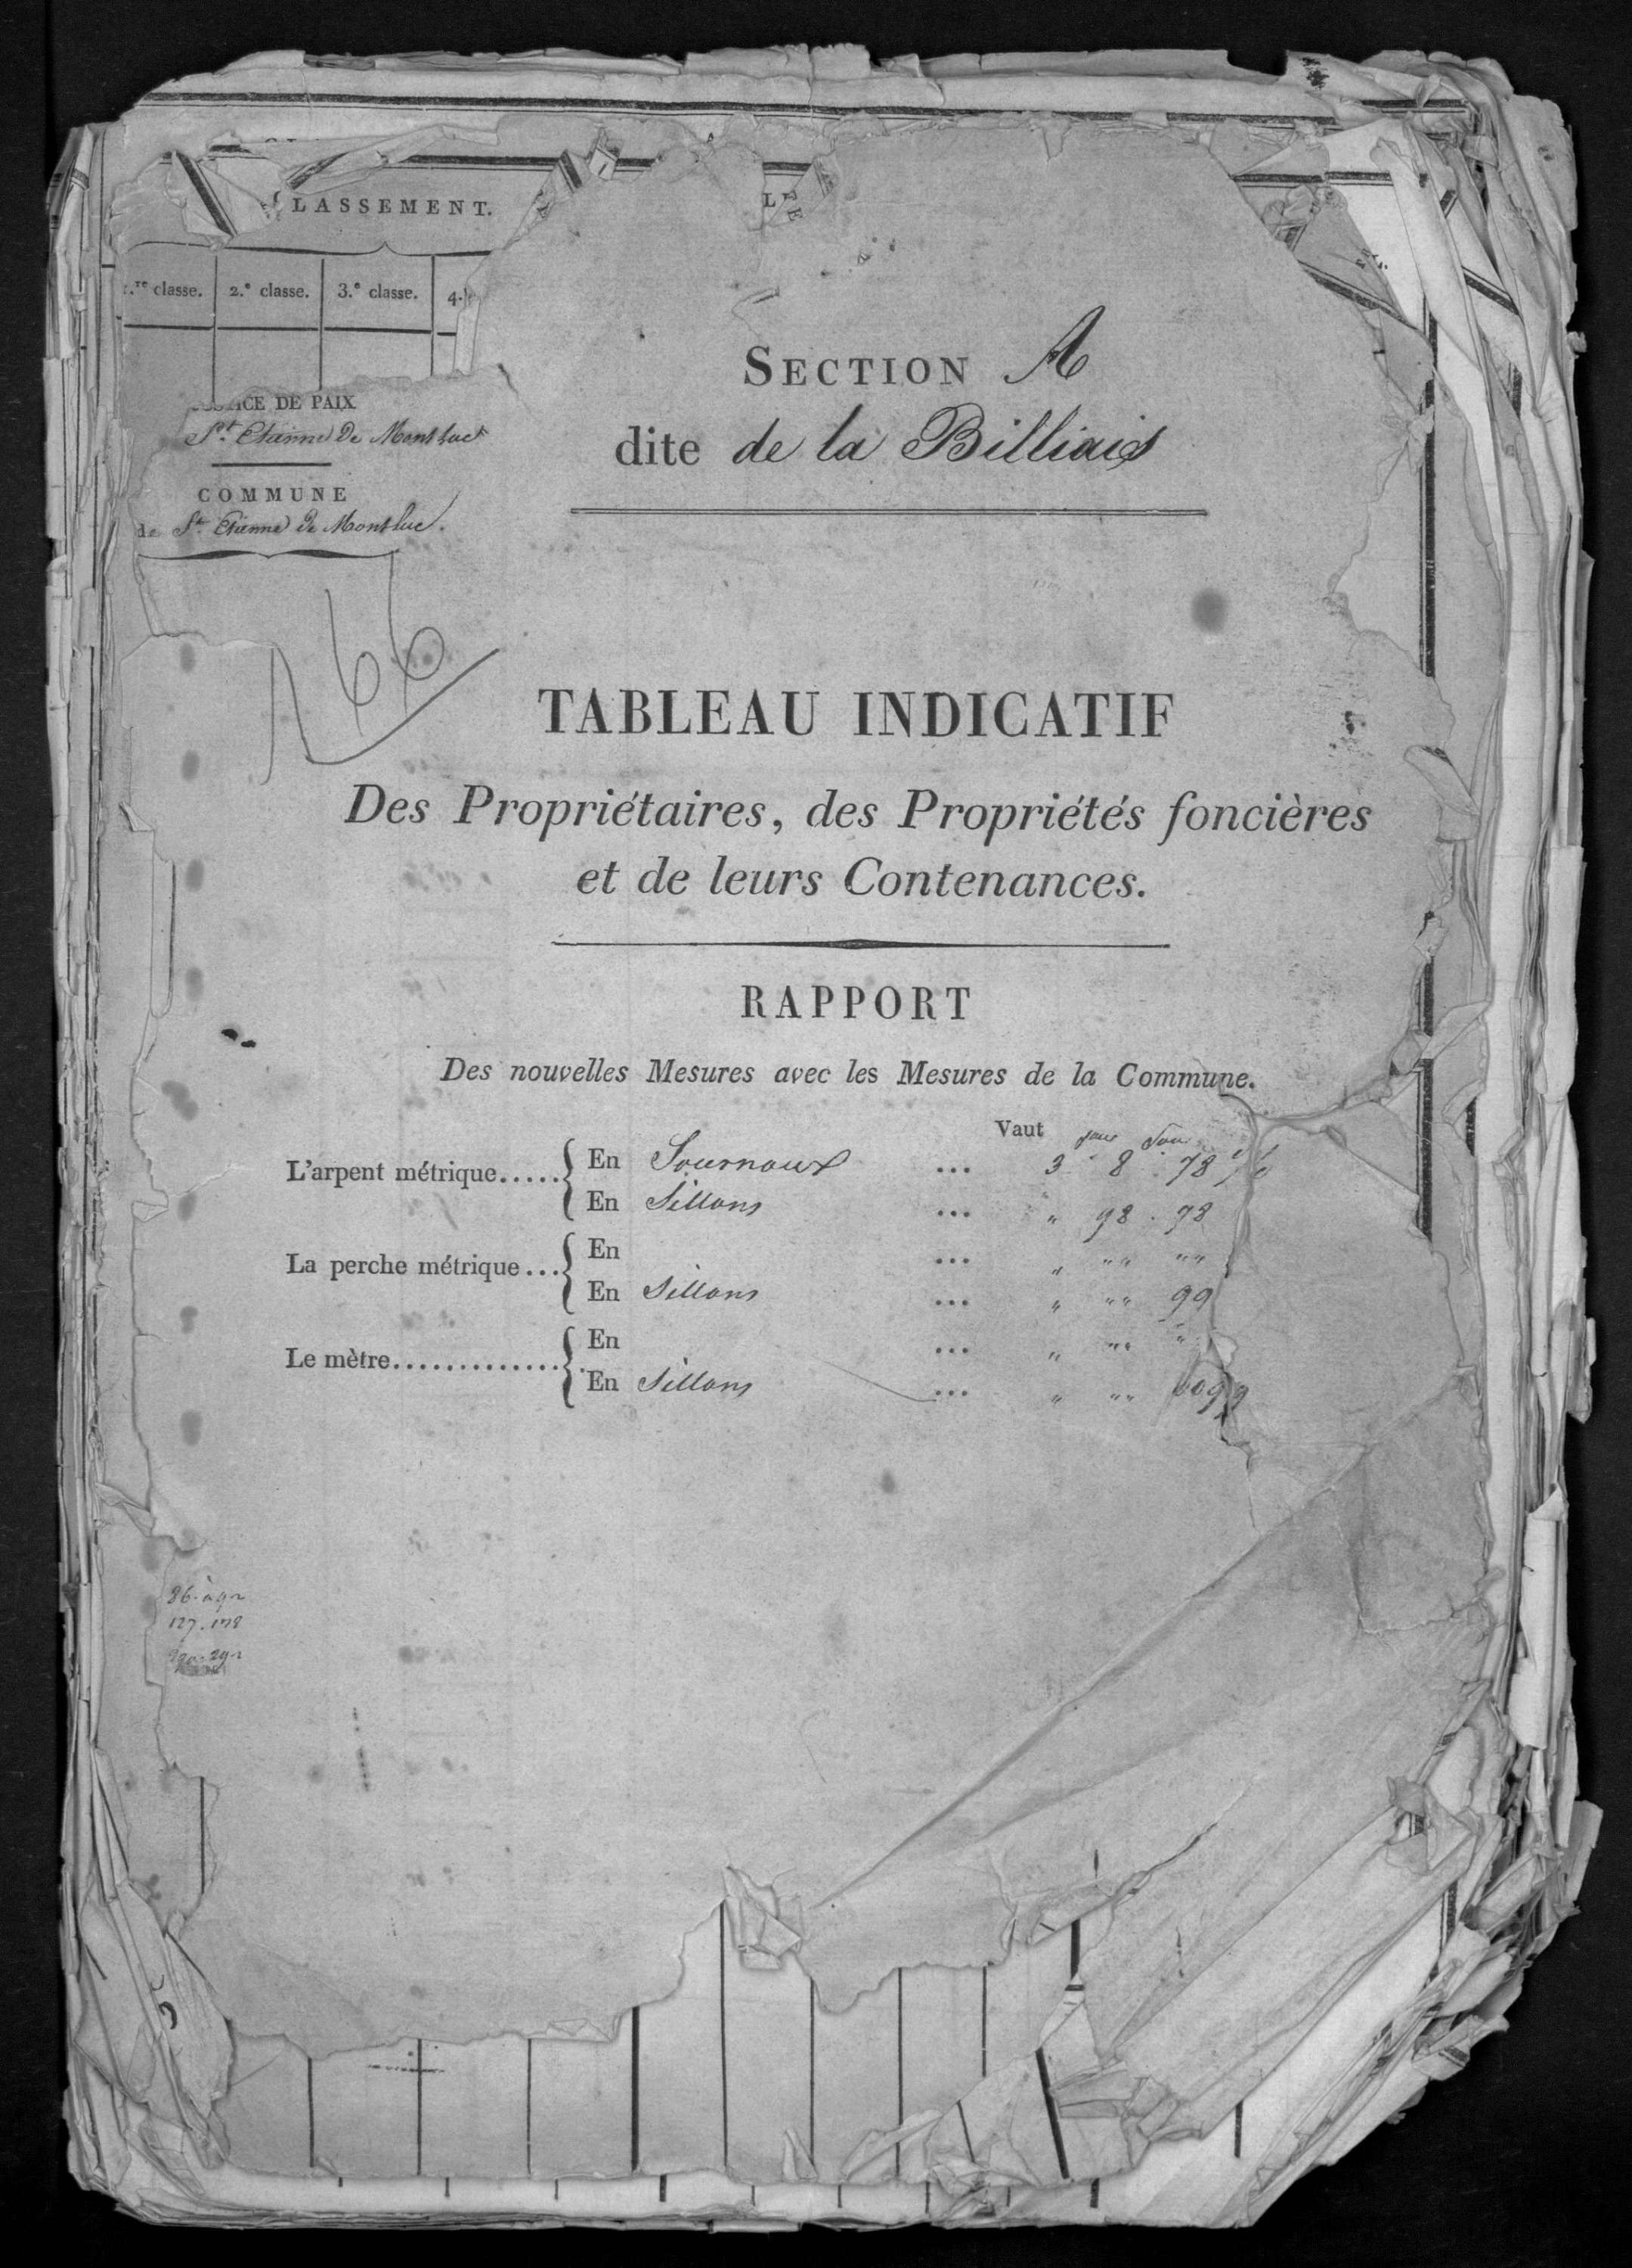 LASSEMENT.
classe. 2.e classe. 3.e classe. 4.
SECTION A
dite de la Billiais
ICE DE PAIX
St Etienne De Montluc
COMMUNE
de St Etienne de Montluc.
166
TABLEAU INDICATIF
Des Propriétaires, des Propriétés foncières
et de leurs Contenances.
RAPPORT
Des nouvelles Mesures avec les Mesures de la Commune.
Vaut
L'arpent métrique..... { En Journaux ... 3 8 . 78
En Sillons ... " 98 . 98
La perche métrique... { En ... " "" ""
En Sillons ... " "" 99
Le mètre.............. { En ... " "" "
En Sillons ... " ""